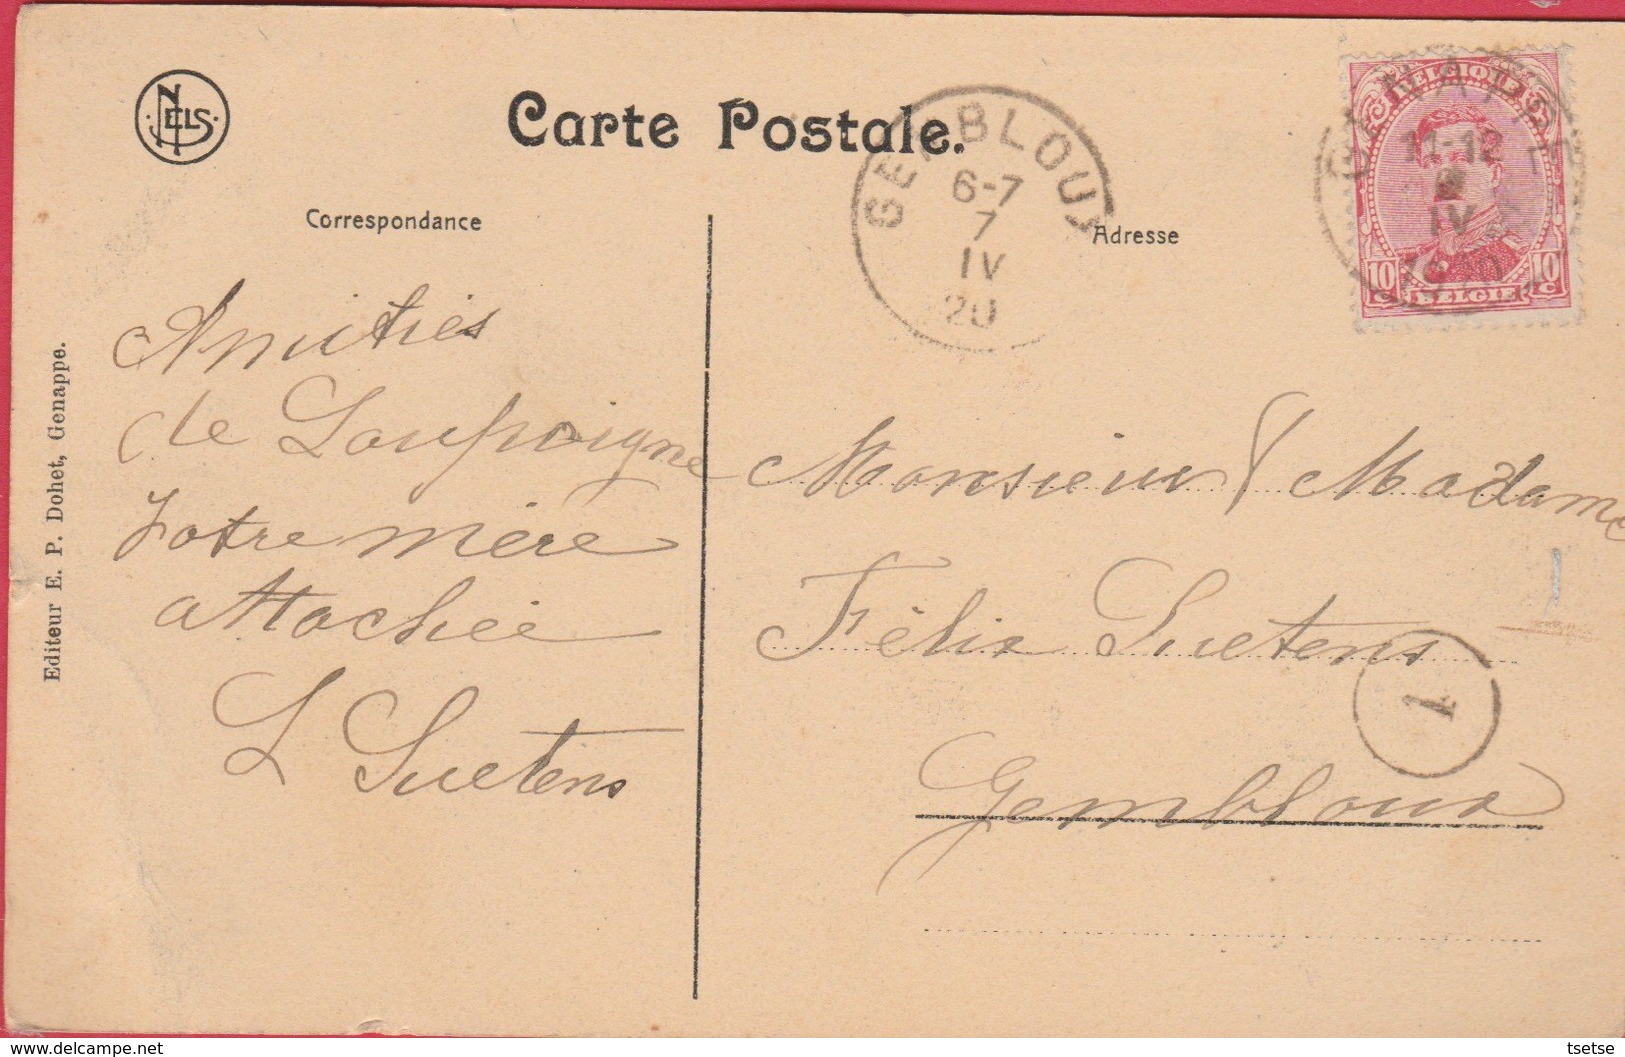 NELS
Carte Postale.
Correspondance
Adresse
GEMBLOUX
6-7
7
IV
20
GENAPPE
11-12
IV
1920
BELGIQUE
10 C
10 C
BELGIE
Amitiés
de Loupoigne
Votre mère
attachée
L Suetens
Monsieur & Madame
Félix Suetens
Gembloux
1
Editeur E. P. Dohet, Genappe.
www.delcampe.net
tsetse